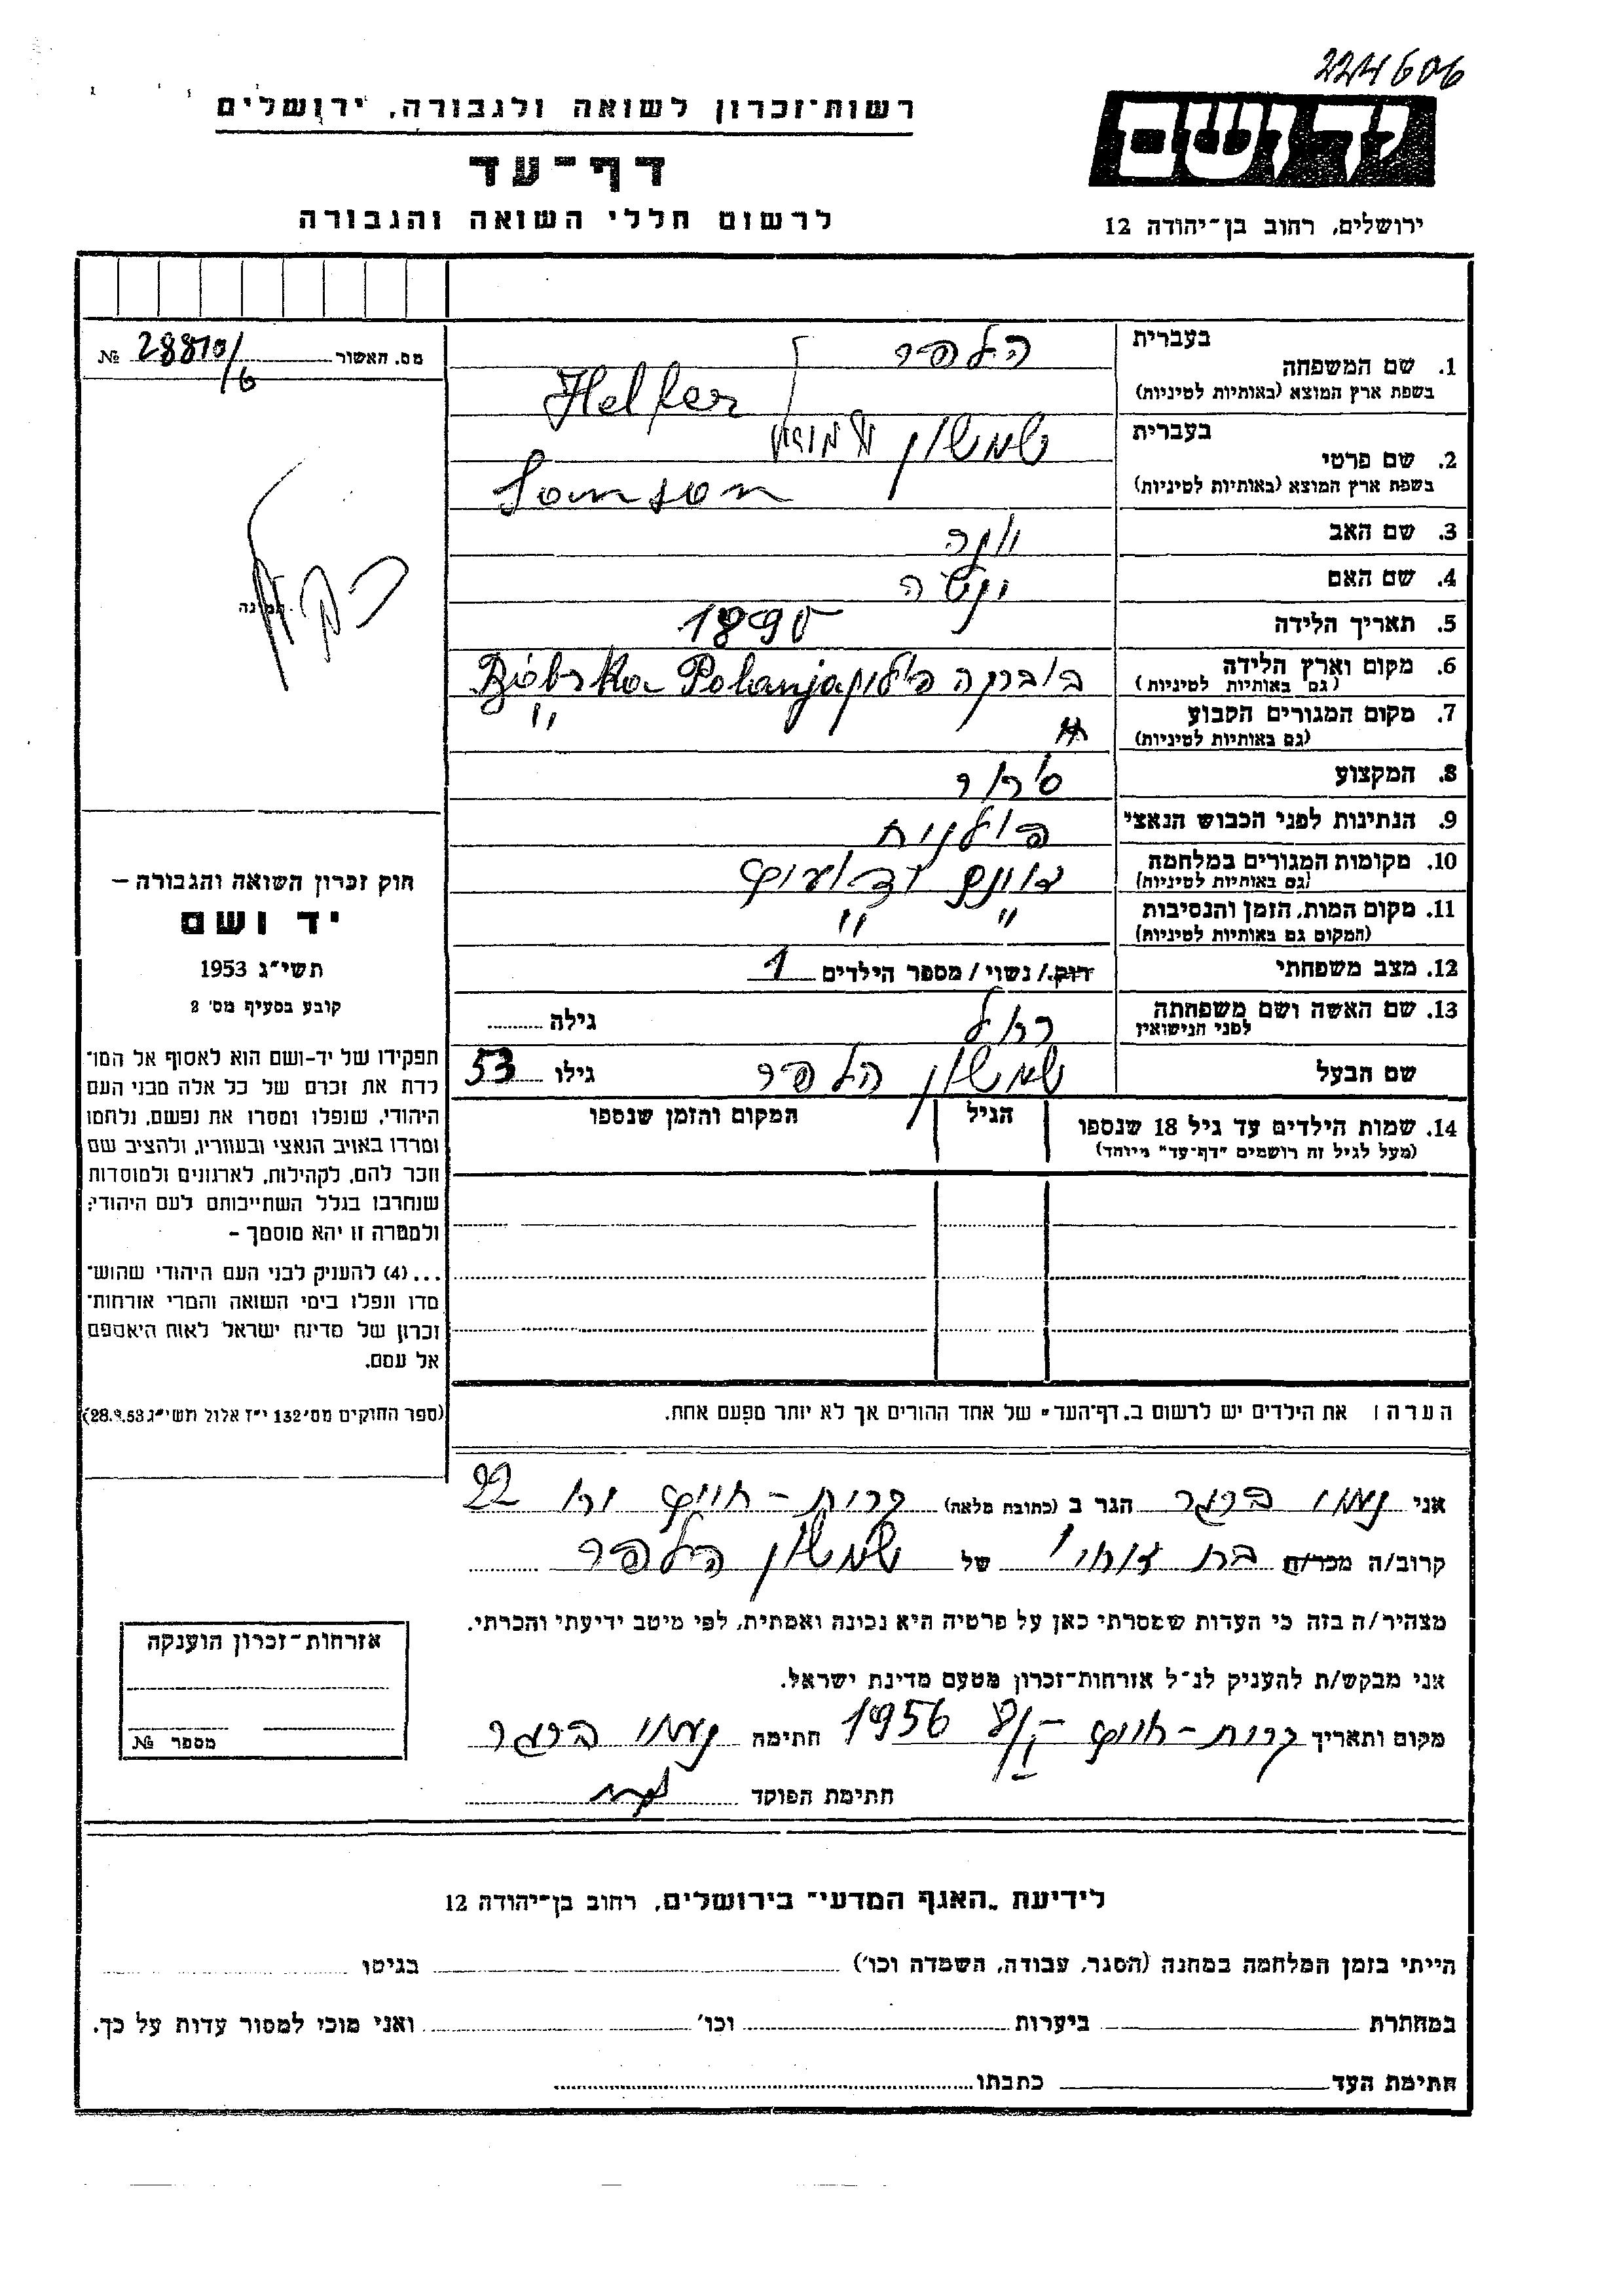 224606
רשות־זכרון לשואה ולגבורה, ירושלים
יד ושם
דף־עד
לרשום חללי השואה והגבורה
ירושלים, רחוב בן־יהודה 12
מס. האשור 28810/6 №
בעברית הלפר
1. שם המשפחה
בשפת ארץ המוצא (באותיות לטיניות) Helfer
בעברית שמשון
2. שם פרטי
בשפת ארץ המוצא (באותיות לטיניות) Samson
3. שם האב
4. שם האם
5. תאריך הלידה 1890
6. מקום וארץ הלידה בוברקה פולין Bóbrka Polanja
(גם באותיות לטיניות)
7. מקום המגורים הקבוע "
(גם באותיות לטיניות)
8. המקצוע סוחר
9. הנתינות לפני הכבוש הנאצי פולנית
10. מקומות המגורים במלחמה
(גם באותיות לטיניות)
11. מקום המות, הזמן והנסיבות " "
(המקום גם באותיות לטיניות)
12. מצב משפחתי רוק/ נשוי/ מספר הילדים 1
13. שם האשה ושם משפחתה רחל גילה
לפני הנישואין
שם הבעל שמשון הלפר גילו 53
14. שמות הילדים עד גיל 18 שנספו הגיל המקום והזמן שנספו
(מעל לגיל זה רושמים "דף־עד" מיוחד)
תמונה
חוק זכרון השואה והגבורה –
יד ושם
תשי"ג 1953
קובע בסעיף מס' 2
תפקידו של יד-ושם הוא לאסוף אל המו־
לדת את זכרם של כל אלה מבני העם
היהודי, שנפלו ומסרו את נפשם, נלחמו
ומרדו באויב הנאצי ובעוזריו, ולהציב שם
וזכר להם, לקהילות, לארגונים ולמוסדות
שנחרבו בגלל השתייכותם לעם היהודי;
ולמטרה זו יהא מוסמך –
...(4) להעניק לבני העם היהודי שהוש־
מדו ונפלו בימי השואה והמרי אזרחות־
זכרון של מדינת ישראל לאות היאספם
אל עמם.
(ספר החוקים מס' 132 י"ז אלול תשי"ג 28.9.53)
הערה: את הילדים יש לרשום ב„דף־העד" של אחד ההורים אך לא יותר מפעם אחת.
אני נעמי ברגר הגר ב (כתובת מלאה) קרית-חיים 22
קרוב/ה מכר/ה בת דודי של שמשון הילפר
מצהיר/ה בזה כי העדות שמסרתי כאן על פרטיה היא נכונה ואמתית, לפי מיטב ידיעתי והכרתי.
אני מבקש/ת להעניק לנ"ל אזרחות־זכרון מטעם מדינת ישראל.
מקום ותאריך קרית-חיים 1956 חתימה נעמי ברגר
חתימת הפוקד
אזרחות־זכרון הוענקה
מספר №
לידיעת „האגף המדעי" בירושלים, רחוב בן־יהודה 12
הייתי בזמן המלחמה במחנה (הסגר, עבודה, השמדה וכו') בגיטו
במחתרת ביערות וכו' ואני מוכן למסור עדות על כך.
חתימת העד כתבתו